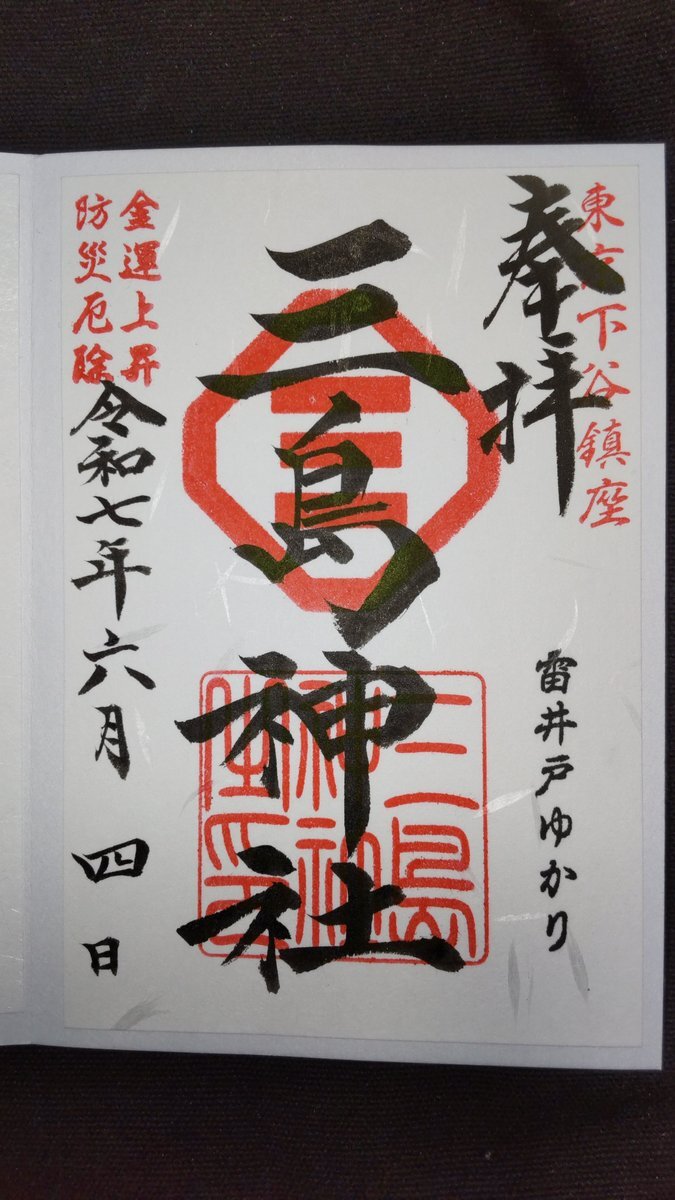 東京下谷鎮座
奉拝
雷井戸ゆかり
三島神社
三島
神社
金運上昇
防災厄除
令和七年六月四日